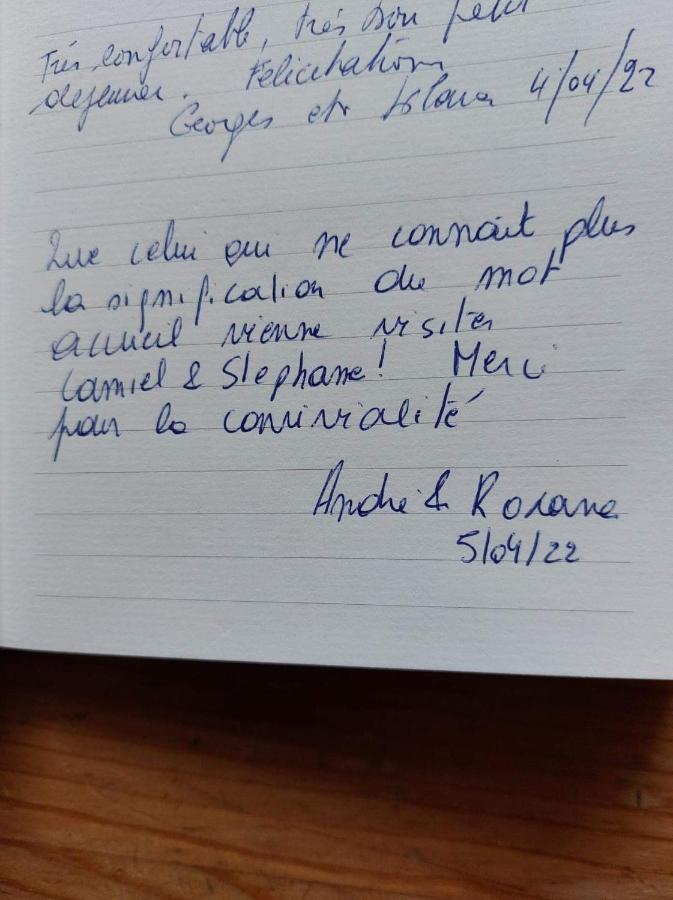 Très confortable, très bon petit
dejeuner. Félicitations
Georges et 4/04/22
Que celui qui ne connait plus
la signification du mot
accueil vienne visiter
Camiel & Stephane! Merci
pour la convivialité
André & Roxane
5/04/22